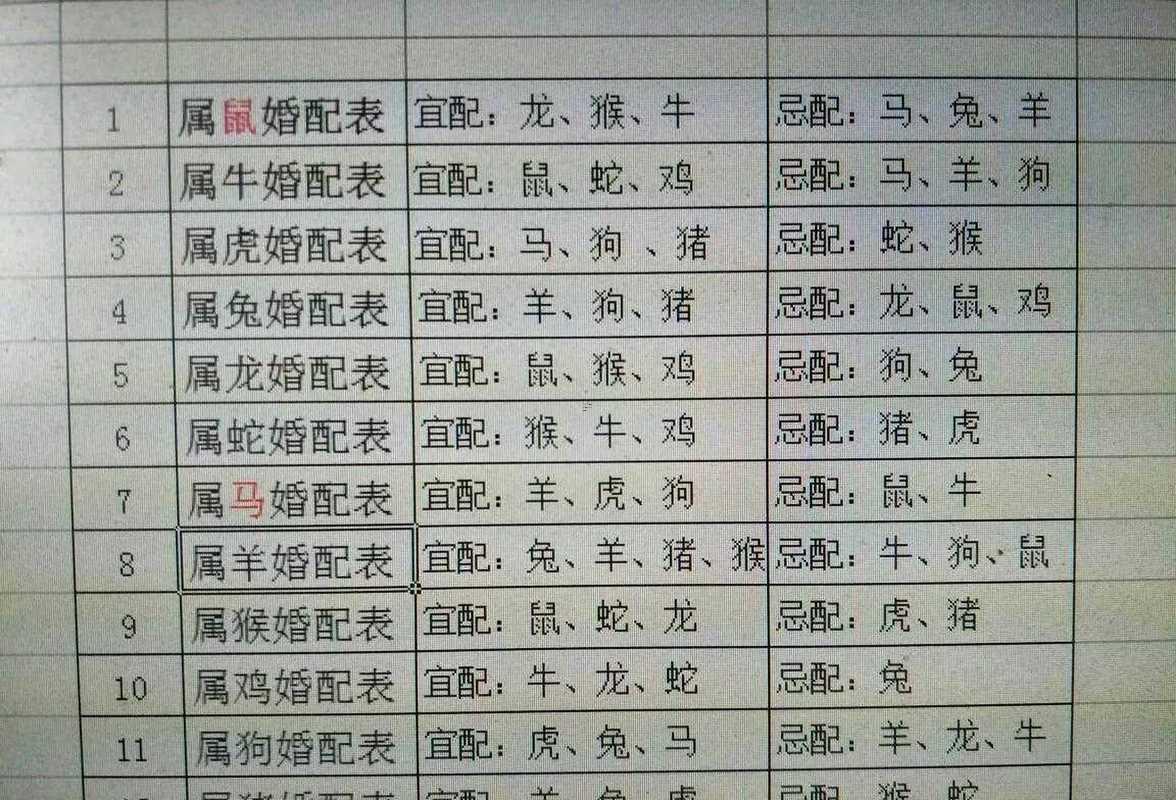 1 属鼠婚配表 宜配：龙、猴、牛 忌配：马、兔、羊
2 属牛婚配表 宜配：鼠、蛇、鸡 忌配：马、羊、狗
3 属虎婚配表 宜配：马、狗 、猪 忌配：蛇、猴
4 属兔婚配表 宜配：羊、狗、猪 忌配：龙、鼠、鸡
5 属龙婚配表 宜配：鼠、猴、鸡 忌配：狗、兔
6 属蛇婚配表 宜配：猴、牛、鸡 忌配：猪、虎
7 属马婚配表 宜配：羊、虎、狗 忌配：鼠、牛
8 属羊婚配表 宜配：兔、羊、猪、猴 忌配：牛、狗、鼠
9 属猴婚配表 宜配：鼠、蛇、龙 忌配：虎、猪
10 属鸡婚配表 宜配：牛、龙、蛇 忌配：兔
11 属狗婚配表 宜配：虎、兔、马 忌配：羊、龙、牛
属猪婚配表 宜配：羊、兔、虎 忌配：猴、蛇